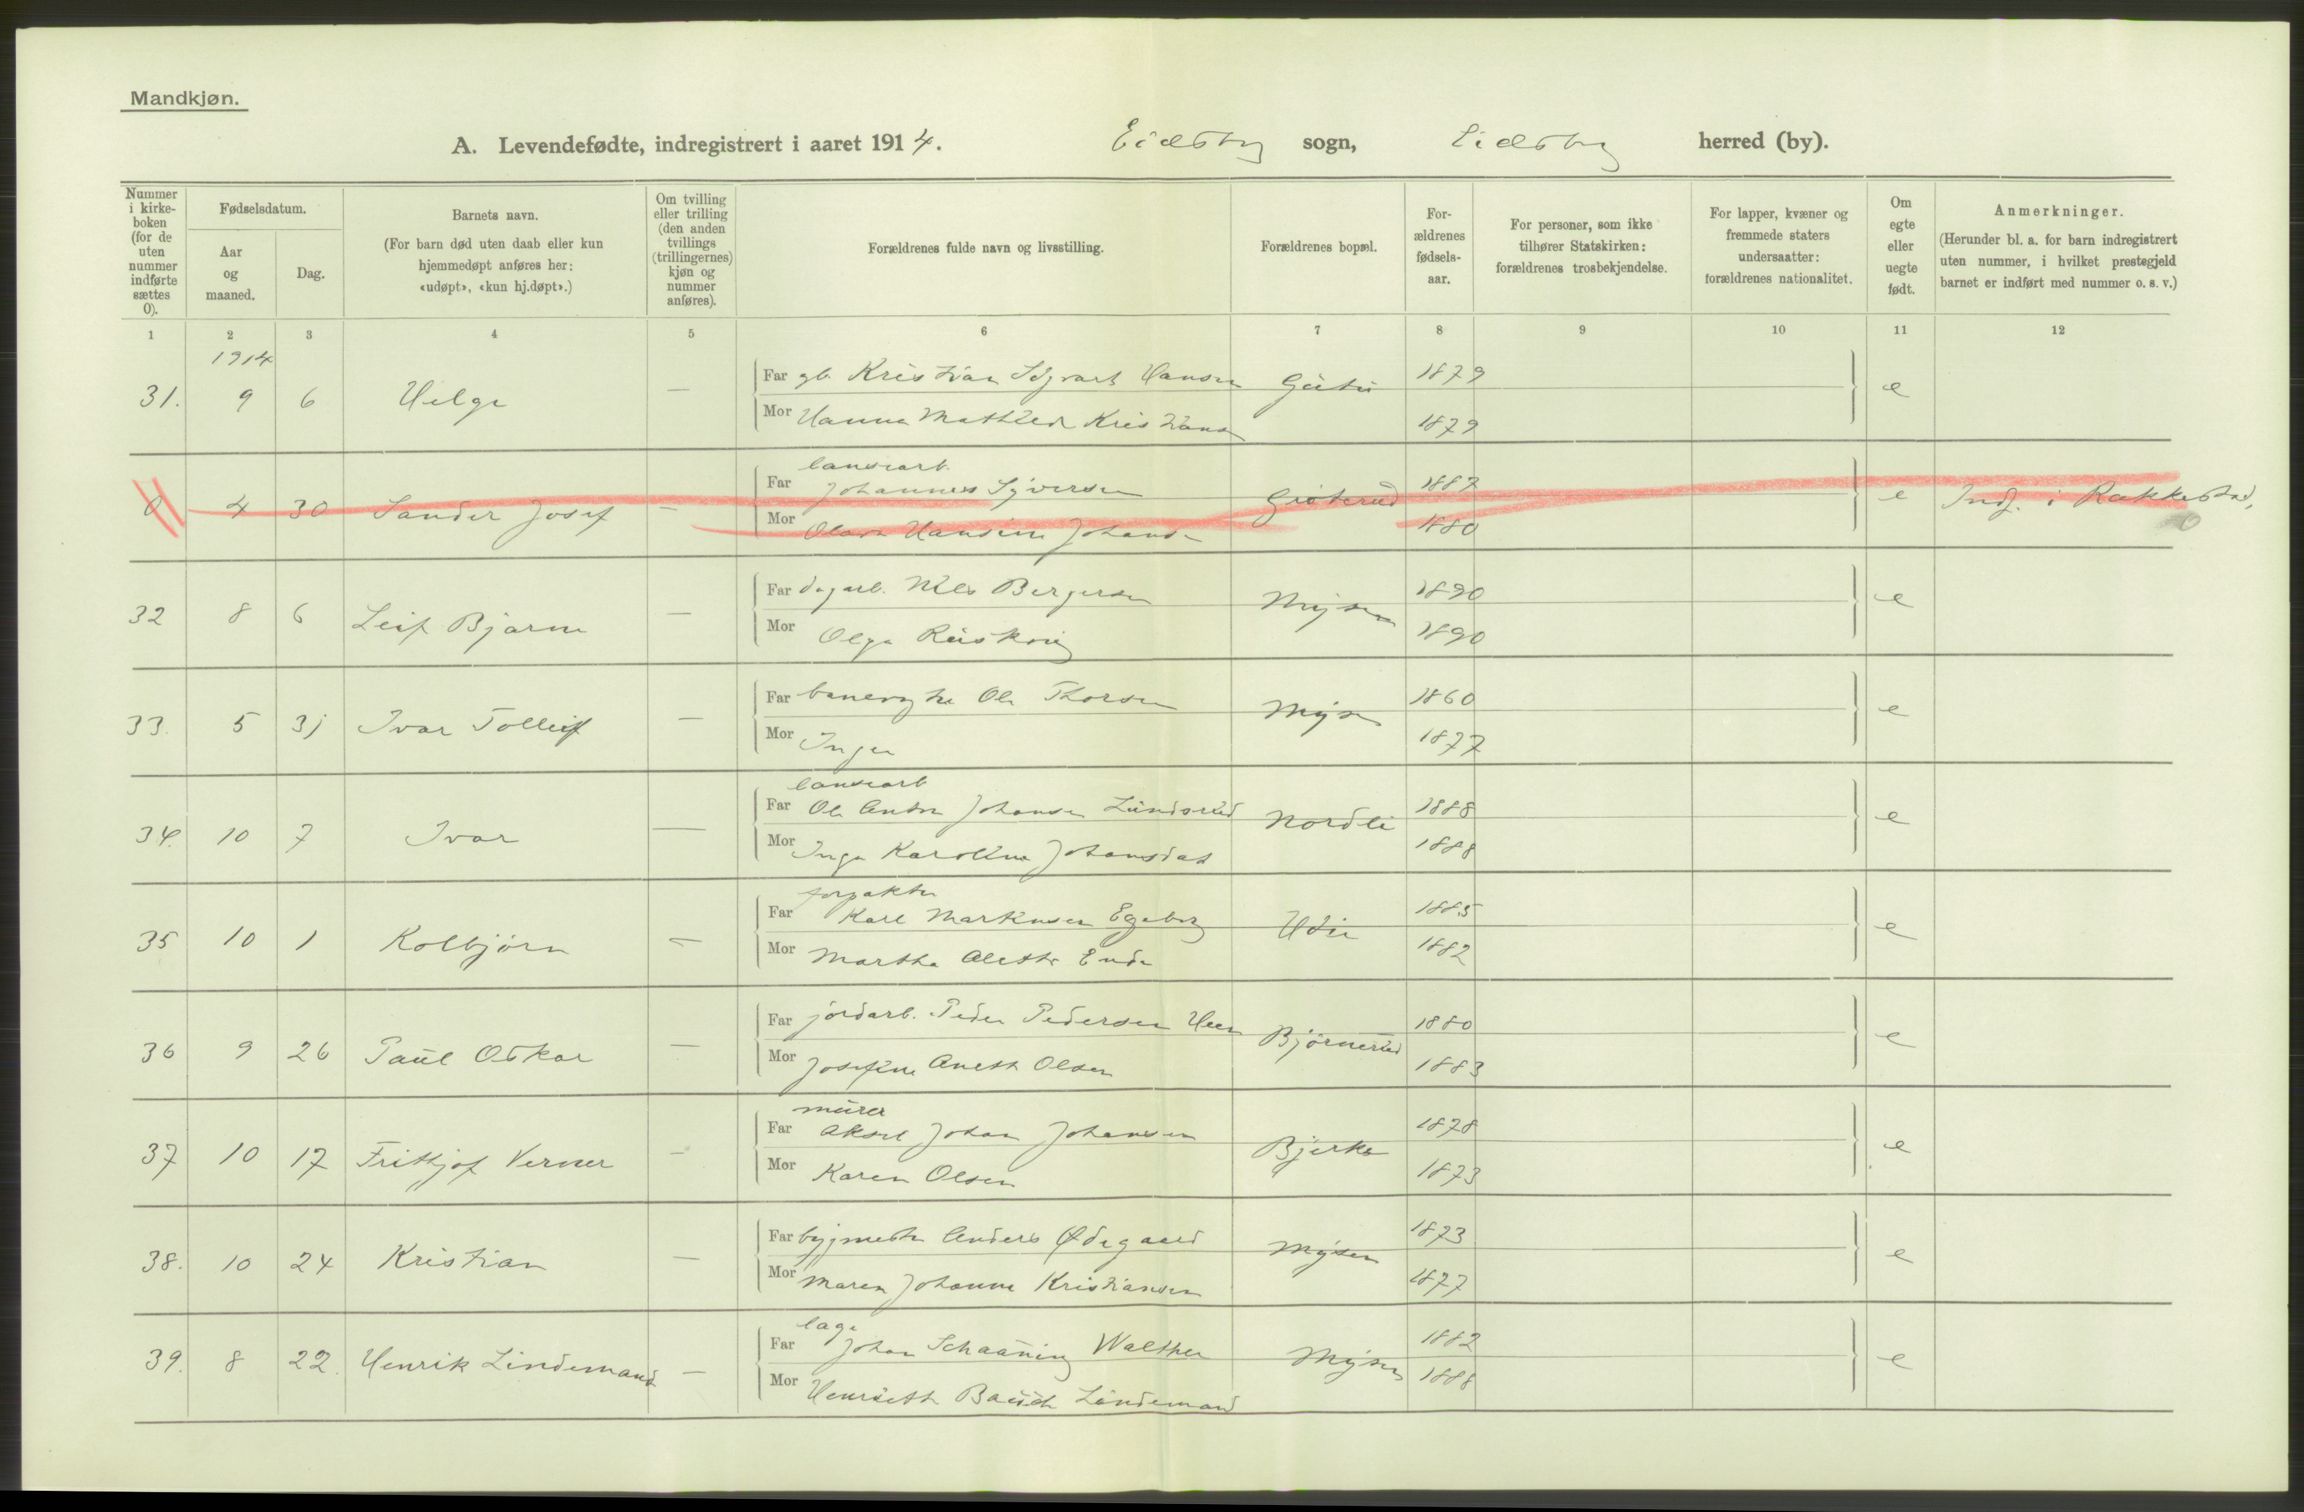 Mandkjøn.
A. Levendefødte, indregistrert i aaret 1914. Eidsberg sogn, Eidsberg herred (by).
Nummer i kirke- boken (for de uten nummer indførte sættes 0).
Fødselsdatum.
Aar og maaned.
Dag.
Barnets navn.
(For barn død uten daab eller kun hjemmedøpt anføres her: «udøpt», «kun hj.døpt».)
Om tvilling eller trilling (den anden tvillings (trillingernes) kjøn og nummer anføres).
Forældrenes fulde navn og livsstilling.
Forældrenes bopæl.
For- ældrenes fødsels- aar.
For personer, som ikke tilhører Statskirken: forældrenes trosbekjendelse.
For lapper, kvæner og fremmede staters undersaatter: forældrenes nationalitet.
Om egte eller uegte født.
Anmerkninger.
(Herunder bl. a. for barn indregistrert uten nummer, i hvilket prestegjeld barnet er indført med nummer o. s. v.)
1 2 3 4 5 6 7 8 9 10 11 12
1914
31. 9 6 Helge — Far gb. Kristian Sigvart Hansen 1879 e
Mor Hanna Mathilde Kristians 1879
landarb.
0 4 30 Sander Josef — Far Johannes Syversen 1887 e Indf. i Rakkestad,
Mor Hansine Johansen 1880
32 8 6 Leif Bjarne — Far dagarb. Nils Bergersen Mysen 1890 e
Mor Olga 1890
33. 5 31 Ivar Tolleif — Far banevogter Ole Thorsen Mysen 1860 e
Mor Inger 1877
landarb
34. 10 7 Ivar — Far Ole Anton Johansen Lundsrud Nordli 1888 e
Mor Inga Karoline Johansdat 1888
forpakter
35 10 1 Kolbjørn — Far Karl Markusen Egeberg 1885 e
Mor Martha Alette 1882
36 9 26 Paul Oskar — Far jordarb. Peder Pedersen Heen Bjørnerud 1880 e
Mor Josefine Aneth Olsen 1883
murer
37 10 17 Frithjof Verner — Far Aksel Johan Johansen Bjerke 1878 e
Mor Karen Olsen 1873
38. 10 24 Kristian — Far bygmester Anders Ødegaard Mysen 1873 e
Mor Maren Johanne Kristiansen 1877
læge
39. 8 22. Henrik Lindemand — Far Johan Schaanning Walther Mysen 1882 e
Mor Henriette Lindemand 1888